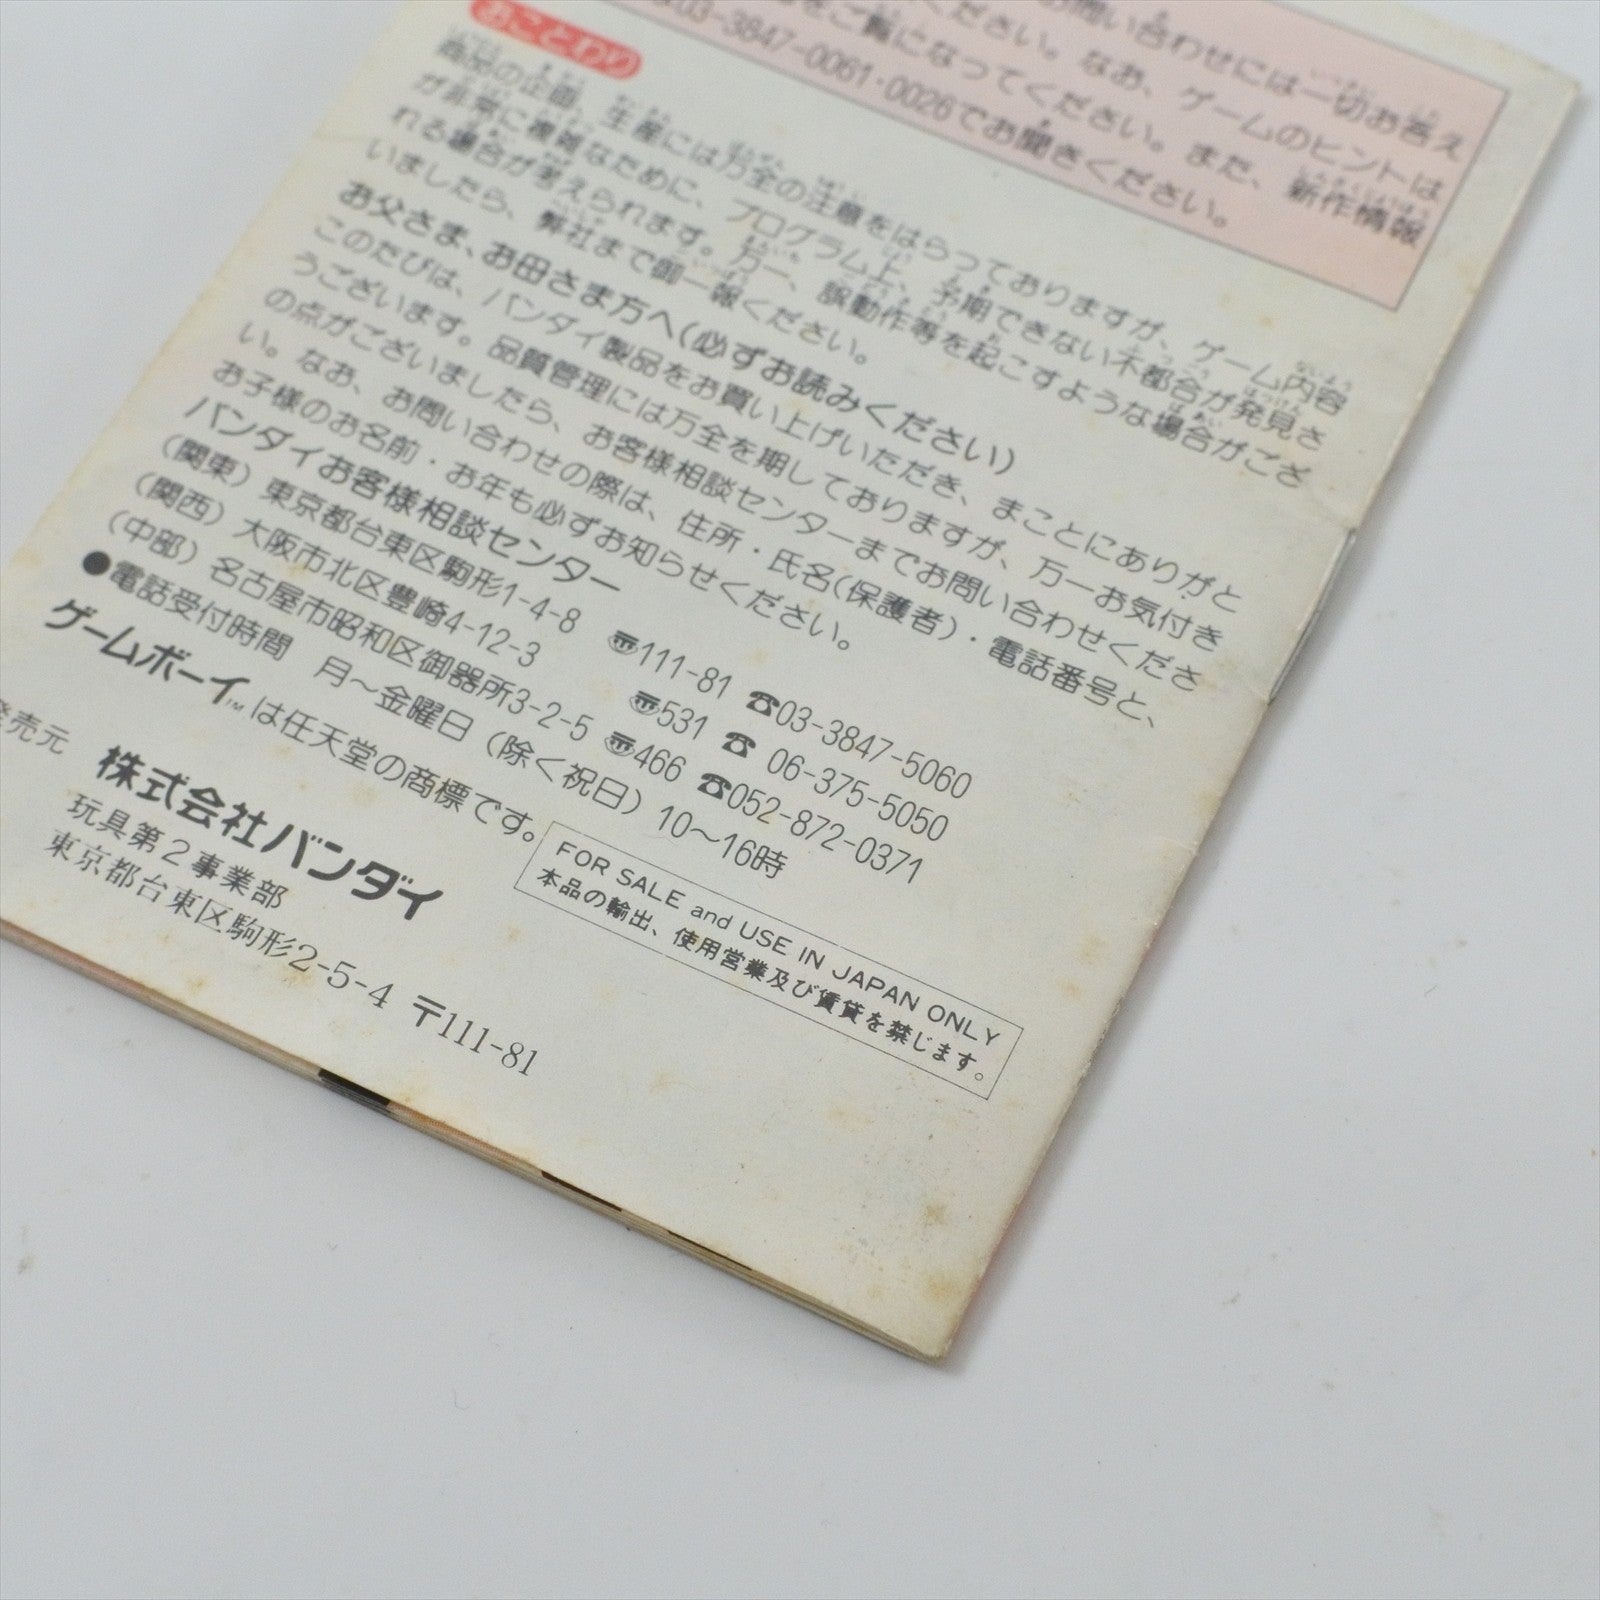 お問い合わせには一切お答え
ください。なお、ゲームのヒントは
をご覧になってください。また、新作情報
03-3847-0061・0026でお聞きください。
おことわり
商品の企画、生産には万全の注意をはらっておりますが、ゲーム内容
が非常に複雑なために、プログラム上、予期できない不都合が発見さ
れる場合が考えられます。万一、誤動作等を起こすような場合がござ
いましたら、弊社まで御一報ください。
お父さま、お母さま方へ(必ずお読みください)
このたびは、バンダイ製品をお買い上げいただき、まことにありがと
うございます。品質管理には万全を期しておりますが、万一お気付き
の点がございましたら、お客様相談センターまでお問い合わせくださ
い。なお、お問い合わせの際は、住所・氏名(保護者)・電話番号と、
お子様のお名前・お年も必ずお知らせください。
バンダイお客様相談センター
(関東) 東京都台東区駒形1-4-8 〠111-81 ☎03-3847-5060
(関西) 大阪市北区豊崎4-12-3 〠531 ☎ 06-375-5050
(中部) 名古屋市昭和区御器所3-2-5 〠466 ☎052-872-0371
●電話受付時間 月〜金曜日 (除く祝日) 10〜16時
ゲームボーイ™は任天堂の商標です。
FOR SALE and USE IN JAPAN ONLY
本品の輸出、使用営業及び賃貸を禁じます。
発売元 株式会社バンダイ
玩具第2事業部
東京都台東区駒形2-5-4 〒111-81